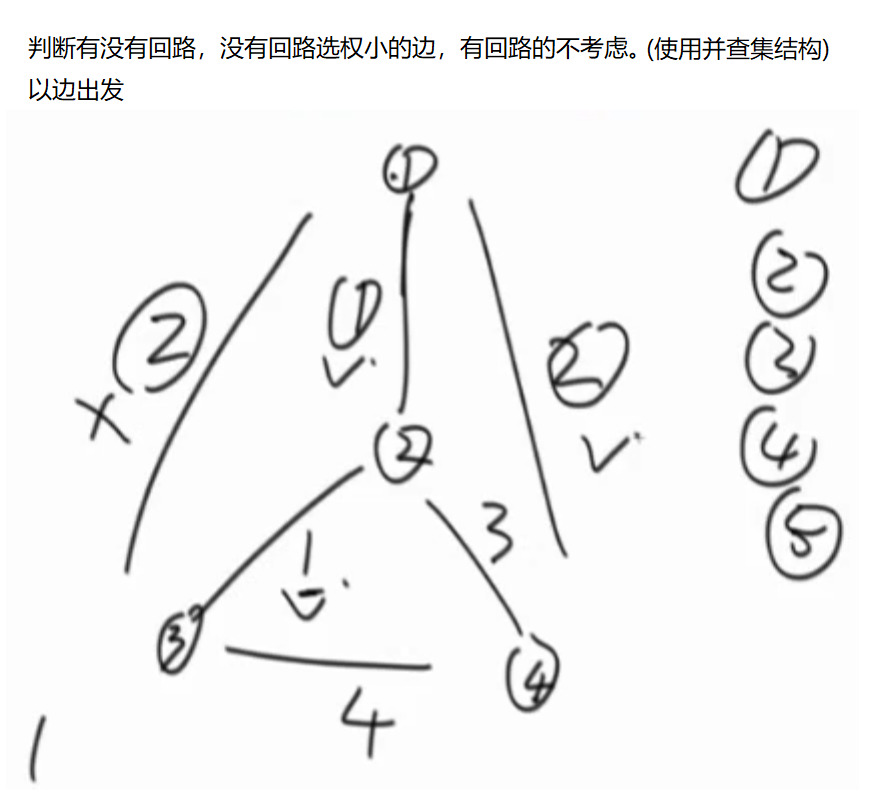 判断有没有回路，没有回路选权小的边，有回路的不考虑。(使用并查集结构)
以边出发
① ①
② ① ②
② ③
② ④
1 3 ⑤
③ ④
4
1